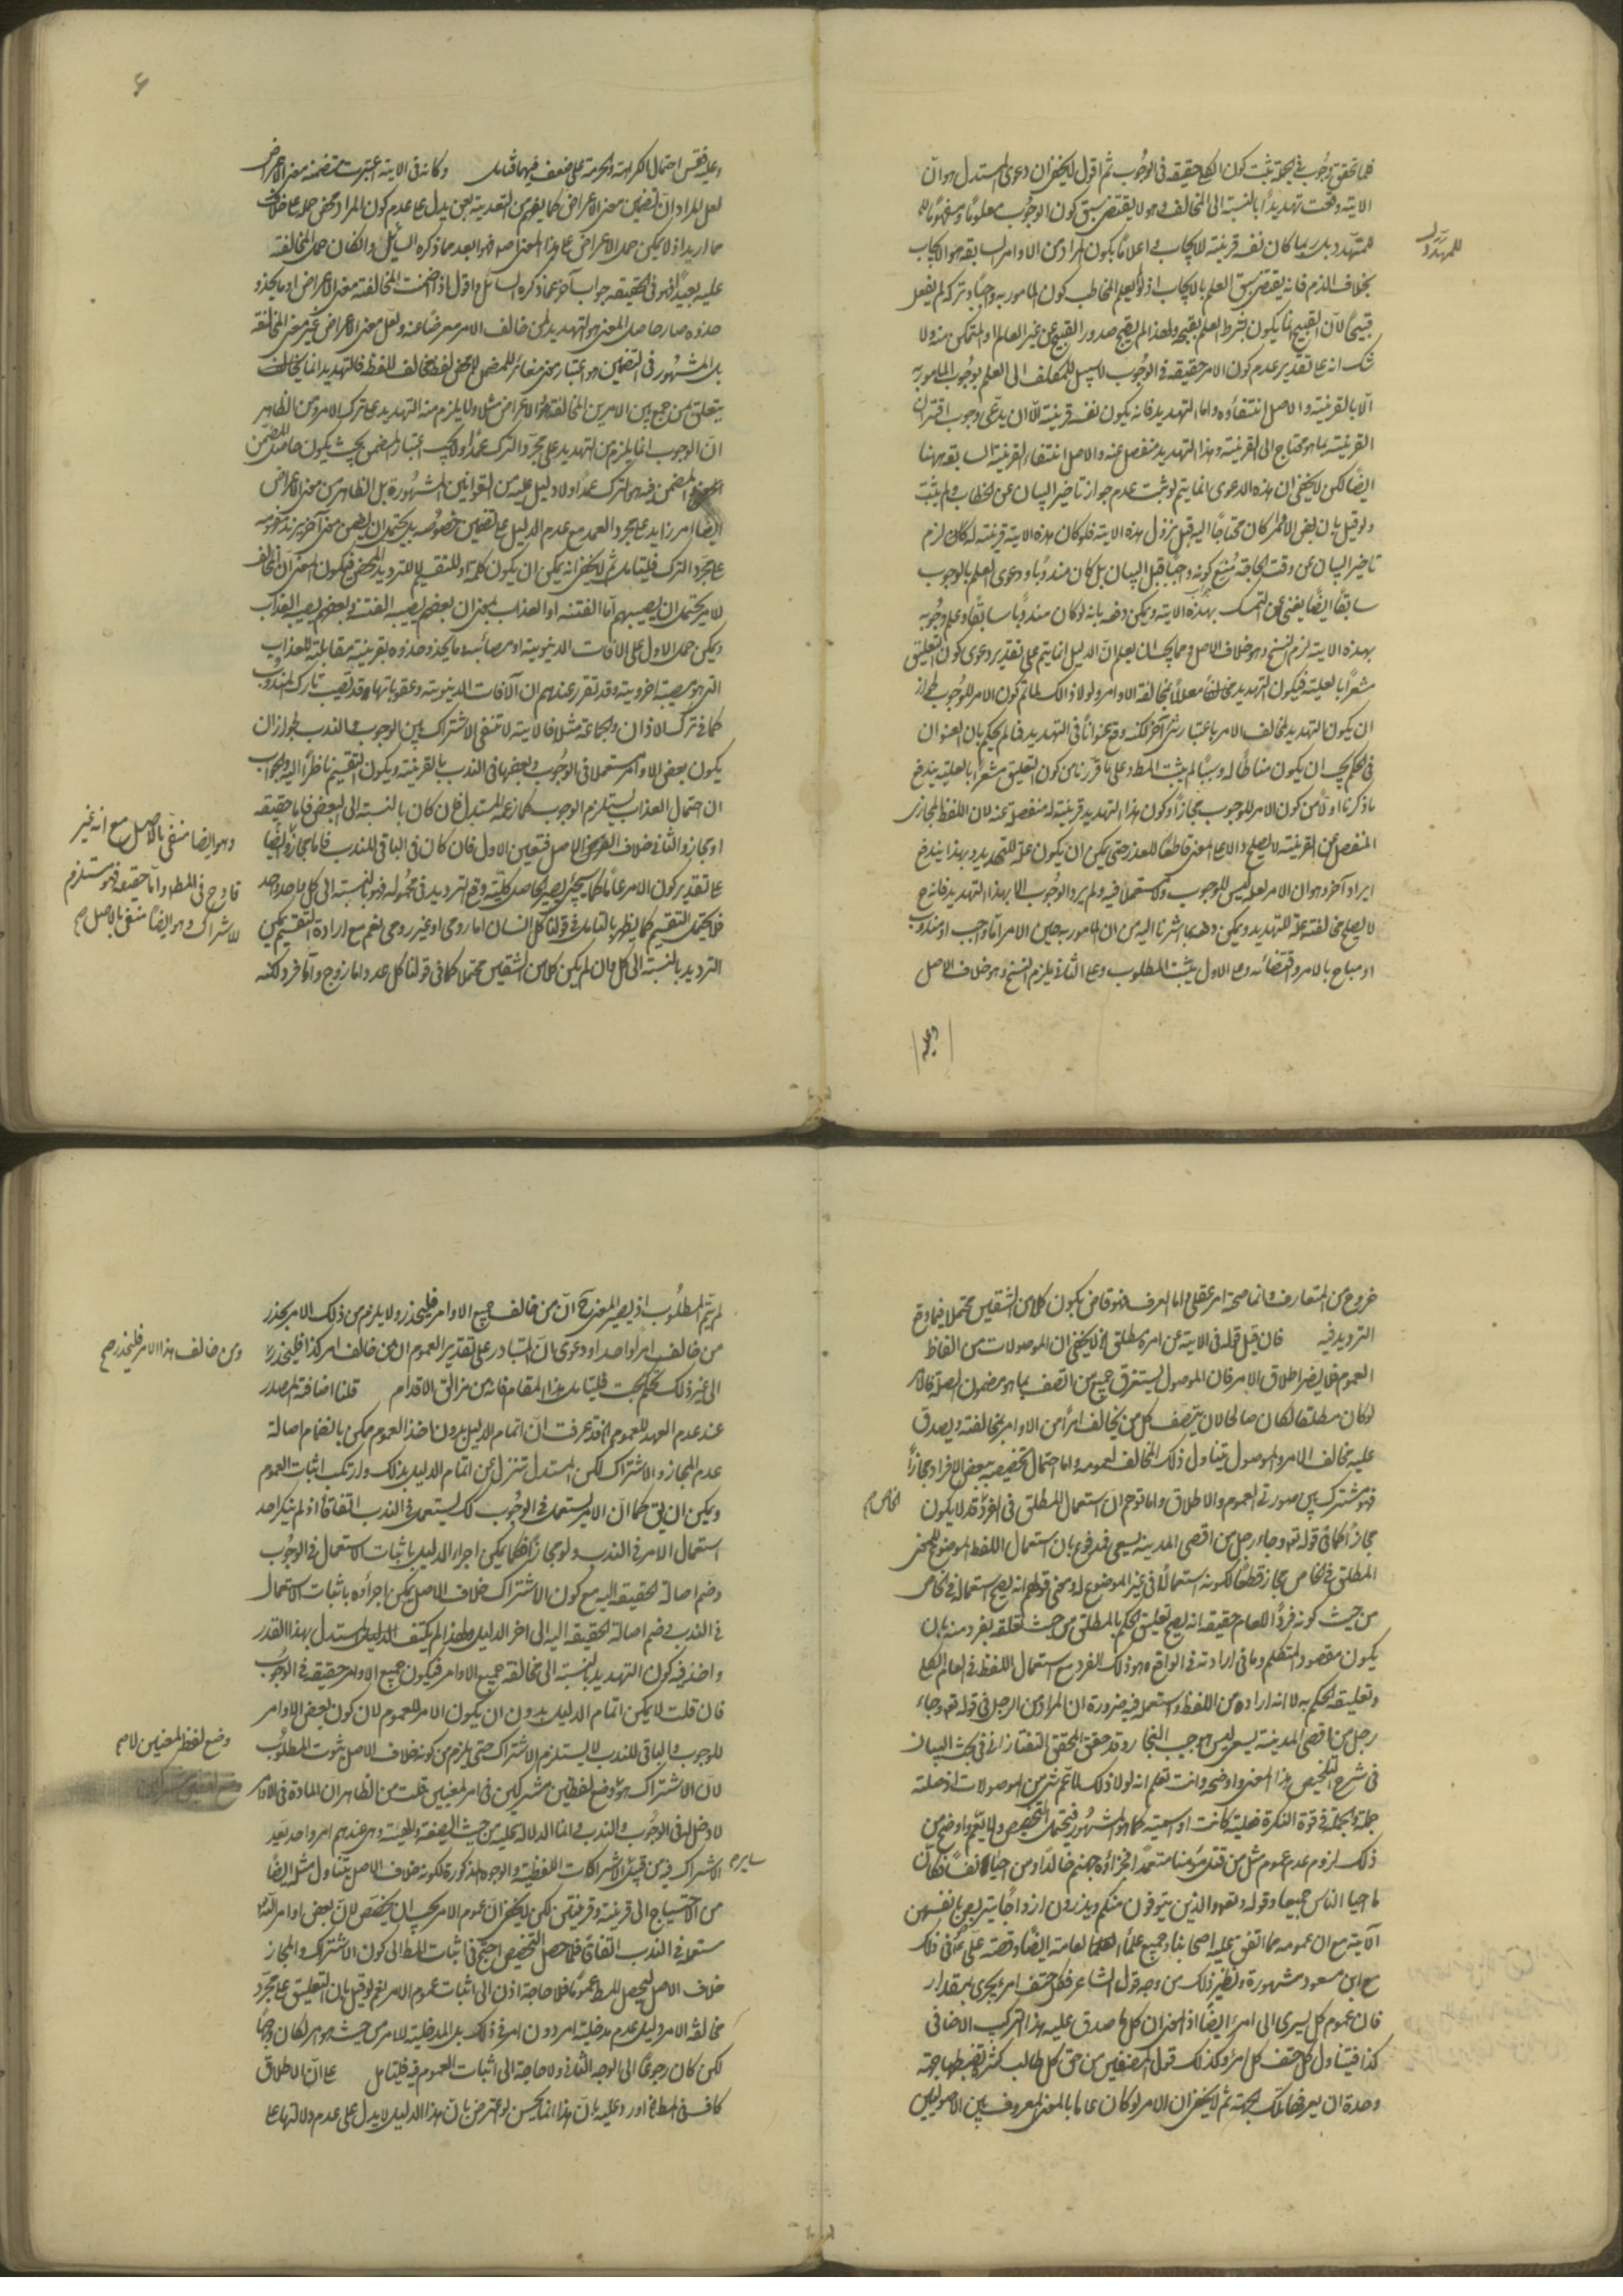 فلما تحقق الوجوب في الجملة ثبت كون الكل حقيقة في الوجوب ثم اقول لا يخفى ان دعوى المستدل هو ان
الاية وقعت تهديدا بالنسبة الى المخالف وهو لا يقتضى سبق كون الوجوب معلوما ومفهوما
للمتهدد بل ربما كان نفسه قرينة للايجاب اعلاما بكون المراد من الاوامر السابقة هو الايجاب
بخلاف الذم فانه يقتضى سبق العلم بالايجاب اذ لو لم يعلم المخاطب كون المامور به واجبا وتركه لم يفعل
قبيحا لان القبيح انما يكون بشرط العلم بقبحه ولهذا لم يقبح صدور القبيح عن غير العالم او المتمكن منه ولا
شك انه على تقدير عدم كون الامر حقيقة في الوجوب لا سبيل للمكلف الى العلم بوجوب المامور به
الا بالقرينة والاصل انتفاؤه واما التهديد فانه يكون نفسه قرينة الا ان يدعى وجوب اقتران
القرينة بما هو محتاج الى القرينة وهذا التهديد منفصل عنه والاصل انتفاء القرينة السابقة ههنا
ايضا لكن لا يخفى ان هذه الدعوى انما يتم لو ثبت عدم جواز تاخير البيان عن الخطاب ولم يثبت
ولو قيل بان بعض الاوامر كان محتاجا اليه قبل نزول هذه الاية فلو كان هذه الاية قرينة له لكان لزم
تاخير البيان عن وقت الحاجة منع كونه واجبا قبل البيان بل كان مندوبا ودعوى العلم بالوجوب
سابقا ايضا يغنى عن التمسك بهذه الاية ويمكن دفعه بانه لو كان مندوبا سابقا وعلم وجوبه
بهذه الاية لزم النسخ وهو خلاف الاصل ومما يجب ان يعلم ان الدليل انما يتم على تقدير دعوى كون التعليق
مشعرا بالعلية فيكون التهديد معللا بمخالفة الاوامر ولولا ذلك لما تم كون الامر للوجوب لجواز
ان يكون التهديد لمخالف الامر باعتبار شئ آخر لكنه وقع عنوانا في التهديد فما لم يحكم بان العنوان
في الحكم يجب ان يكون مناطا له وسببا لم يثبت المط وعلى ما قررنا من كون التعليق مشعرا بالعلية يندفع
ما ذكرنا اولا من كون الامر للوجوب مجازا وكون هذا التهديد قرينة له منفصلة عنه لان اللفظ المجازى
المنفصل عن القرينة لا يصلح دالا على المعنى قاطعا للعذر حتى يمكن ان يكون علة للتهديد وبهذا يندفع
ايراد آخر وهو ان الامر لعله ليس للوجوب ولا مستعملا فيه ولم يرد الوجوب الا بهذا التهديد فانه ح
لا يصلح مخالفته علة للتهديد ويمكن دفعه بما اشرنا اليه من ان المامور به حين الامر اما واجب او مندوب
او مباح بالامر واقتضائه وعلى الاول يثبت المطلوب وعلى الثانى يلزم النسخ وهو خلاف الاصل
وعليه
للمهدد
وعليه فقس احتمال الكراهة والحرمة على ضعف فيهما فتامل وكانه في الاية اعتبرت متضمنة معنى الاعراض
لعل المراد ان تضمين معنى الاعراض كما يفهم من التعدية بعن يدل على عدم كون المراد محض حمله على خلاف
ما اريد اذ لا يمكن حمل الاعراض على هذا المعنى اصلا فهو ابعد مما ذكره السائل والكان حمل المخالفة
عليه بعيدا فهو في الحقيقة جواب آخر عما ذكره السائل واقول اذا ضمنت المخالفة معنى الاعراض او ما يحذو
حذوه صار حاصل المعنى هو التهديد لمن خالف الامر معرضا عنه ولعل معنى الاعراض غير معنى المخالفة
بل المشهور في التضمين هو اعتبار معنى مغائر للمضمن فالتهديد انما
يتعلق بمن جمع بين الامرين المخالفة والاعراض مثلا ولا يلزم منه التهديد على ترك الامر ومن الظاهر
ان الوجوب انما يلزم من التهديد على مجرد الترك عمدا ولا يجب اعتبار المضمن بحيث يكون حاصل
المضمن فيه هو الترك عمدا ولا دليل عليه من القوانين المشهورة بل الظاهر من معنى الاعراض
ايضا امر زايد على مجرد العمد مع عدم الدليل على تضمين خصوصه بل يحتمل ان يضمن معنى آخر
على مجرد الترك فليتامل ثم لا يخفى انه يمكن ان يكون كلمة او للتقسيم لا للترديد المحض فيكون المعنى ان المخالف
للامر يحتمل ان يصيبهم اما الفتنة او العذاب بمعنى ان بعضهم يصيبه الفتنة وبعضهم يصيبه العذاب
ويمكن حمل الاول على الافات الدنيوية او مصائب وما يحذو حذوه بقرينة مقابلته للعذاب
التى هو مصيبة اخروية وقد تقرر عندهم ان الآفات الدنيوية وعقوباتها قد تصيب تارك المندوب
كما في ترك الاذان والجماعة مثلا فالاية لا تنفى الاشتراك بين الوجوب والندب لجواز ان
يكون بعض الاوامر مستعملا في الوجوب وبعضها في الندب بالقرينة ويكون التقسيم ناظرا اليه والجواب
ان احتمال العذاب يستلزم الوجوب كما زعمه المستدل فان كان بالنسبة الى البعض فاما حقيقة
او مجاز والثانى خلاف الاصل فتعين الاول فان كان في الباقى للندب فاما مجاز ايضا
على تقدير كون الامر عاما كما سيجئ يصير الحاصل كلية وقع الترديد في محموله فهو بالنسبة الى كل واحد واحد
فلا يحتمل التقسيم كما يظهر بالتامل في قولنا كل انسان اما رومى او غير رومى نعم مع ارادة التقسيم يمكن
الترديد بالنسبة الى كل وان لم يكن كلا من الشقين محتملا كما في قولنا كل عدد اما زوج واما فرد لكنه
وهو ايضا منفى بالاصل مع انه غير
قادح في المط واما حقيقة فهو مستلزم
للاشتراك وهو ايضا منفى بالاصل صح
خروج من المتعارف وانما صحته امر عقلى واما العرف فهو قاض بكون كلا من الشقين محتملا فيما وقع
الترديد فيه فان قيل قوله في الاية عن امره مطلق الخ لا يخفى ان الموصولات من الفاظ
العموم فلا يضر اطلاق الامر فان الموصول يستغرق جميع من اتصف بما هو مضمون الصلة فالامر
لو كان مطلقا لكان صالحا لان يتصف كل من يخالف امرا من الاوامر بمخالفته ويصدق
عليه مخالف الامر والموصول يتناول ذلك المخالف لعمومه واما احتمال تخصيصه ببعض الافراد مجازا
فهو مشترك بين صورتى العموم والاطلاق واما توهم ان استعمال المطلق في الفرد قد لا يكون
مجازا كما في قوله تعه وجاء رجل من اقصى المدينة يسعى فمدفوع بان استعمال اللفظ الموضوع للمعنى
المطلق في الخاص مجاز قطعا لكونه استعمالا في غير الموضوع له ومعنى قولهم انه يصح استعماله في الخاص
من حيث كونه فردا للعام حقيقة انه يصح تعليق الحكم بالمطلق من حيث تعلقه بفرد منه بان
يكون مقصود المتكلم وما في ارادته في الواقع هو ذلك الفرد مع استعمال اللفظ في العام الكلى
وتعليقه الحكم به لا انه اراده من اللفظ واستعمله فيه ضرورة ان المراد من الرجل في قوله تعه وجاء
رجل من اقصى المدينة يسعى ليس هو حبيب النجار وقد حقق المحقق التفتازانى في بحث البيان
في شرح التلخيص هذا المعنى واوضحه وانت تعلم انه لولا ذلك لما تم شئ من الموصولات اذ صلته
جملة والجملة في قوة النكرة فعلية كانت او اسمية كما هو المشهور فيحتمل التخصيص ولا يتم واوضح من
ذلك لزوم عدم عموم مثل من قتل مؤمنا متعمدا فجزاؤه جهنم خالدا ومن احيا نفسا فكانما
احيا الناس جميعا وقوله تعه والذين يتوفون منكم ويذرون ازواجا يتربصن بانفسهن
الآية مع ان عمومه مما اتفق عليه اصحابنا وجميع علماء العامة ايضا وقصة على ع في ذلك
مع ابن مسعود مشهورة ونظير ذلك من وجه قول الشاعر فكل حتف امرئ يجرى بمقدار
فان عموم كل يسرى الى امرئ ايضا اذ المعنى ان كل ما صدق عليه هذا التركيب الاضافى
كذا فيتناول كل حتف كل امرئ وكذلك قول المصنفين من حق كل طالب كثرة تضبطها جهة
وحدة ان يعرفها بتلك الجهة ثم لا يخفى ان الامر لو كان عاما بالمعنى المعروف بين الاصوليين
الخاص صح
لم يتم المطلوب اذ يصير المعنى ح ان من خالف جميع الاوامر فليحذر ولا يلزم من ذلك الامر بحذر
من خالف امرا واحدا ودعوى ان المتبادر على تقدير العموم ان من خالف امر كذا فليحذر
الى غير ذلك تحكم بحت فليتامل هذا المقام فانه من مزالق الاقدام قلنا اضافة المصدر
عند عدم العهد للعموم الخ قد عرفت ان اتمام الدليل بدون اخذ العموم ممكن بانضمام اصالة
عدم المجاز والاشتراك لكن المستدل تنزل عن اتمام الدليل بذلك وارتكب اثبات العموم
ويمكن ان يق كما ان الامر يستعمل في الوجوب كك يستعمل في الندب اتفاقا اذ لم ينكر احد
استعمال الامر في الندب ولو مجازا فكما يمكن اجراء الدليل باثبات الاستعمال في الوجوب
وضم اصالة الحقيقة اليه مع كون الاشتراك خلاف الاصل يمكن اجراؤه باثبات الاستعمال
في الندب وضم اصالة الحقيقة اليه الى اخر الدليل ولهذا لم يكتف المستدل بهذا القدر
واخذ فيه كون التهديد بالنسبة الى مخالفة جميع الاوامر فيكون جميع الاوامر حقيقة في الوجوب
فان قلت لا يمكن اتمام الدليل بدون ان يكون الامر للعموم لان كون بعض الاوامر
للوجوب والباقى للندب لا يستلزم الاشتراك حتى يلزم من كونه خلاف الاصل ثبوت المطلوب
لان الاشتراك هو وضع لفظين مشتركين في امر لمعنيين قلت من الظاهر ان المادة في الاوامر
لا دخل له في الوجوب والندب وانما الدلالة عليه من حيث الصيغة والهيئة وهى عندهم امر واحد بعيد
الاشتراك فيه من قبيل الاشتراكات اللفظية والوجوه المذكورة لكونه خلاف الاصل يتناول مثله ايضا
من الاحتياج الى قرينة وقرينتين لكن لا يخفى ان عموم الامر يجب ان يخصص لان بعض اوامر الله
مستعملة في الندب اتفاقا فلما حصل التخصيص احتيج في اثبات المط الى كون الاشتراك والمجاز
خلاف الاصل ليحصل المط عموما فلا حاجة اذن الى اثبات عموم الامر نعم لو قيل بان التعليق على مجرد
مخالفة الامر دليل عدم مدخلية امر دون امر في ذلك بل المدخلية للامر من حيث هو هو لكان وجها
لكن كان رجوعا الى الوجه الثانى ولا حاجة الى اثبات العموم فيه فليتامل على ان الاطلاق
كاف في المط الخ اورد عليه بان هذا انما يحسن لو اعترض بان هذا الدليل لا يدل على عدم دلالتها على
ومن خالف هذا الامر فليحذر صح
وضع لفظ لمعنيين لا صح
ساير صح